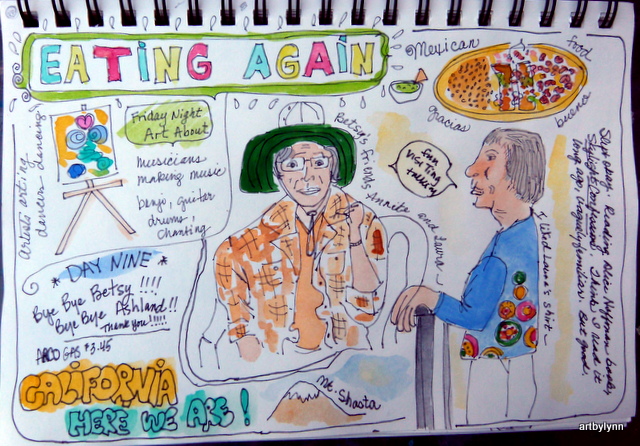 EATING AGAIN
Mexican
food
gracias
buenos
Friday Night
Art About
musicians
making music
banjo, guitar
drums,
chanting
Artists arting
dancers dancing
Betsy's friends Annita and Laura
fun
visiting
talking
I liked Laura's shirt
Slow day. Reading Alice Hoffman books
long ago, vaguely familiar. But good
DAY NINE
Bye Bye Betsy !!!!
Bye Bye Ashland!!
Thank you!!!!!
ARCO GAS $3.45
CALIFORNIA
HERE WE ARE!
Mt. Shasta
artbylynn